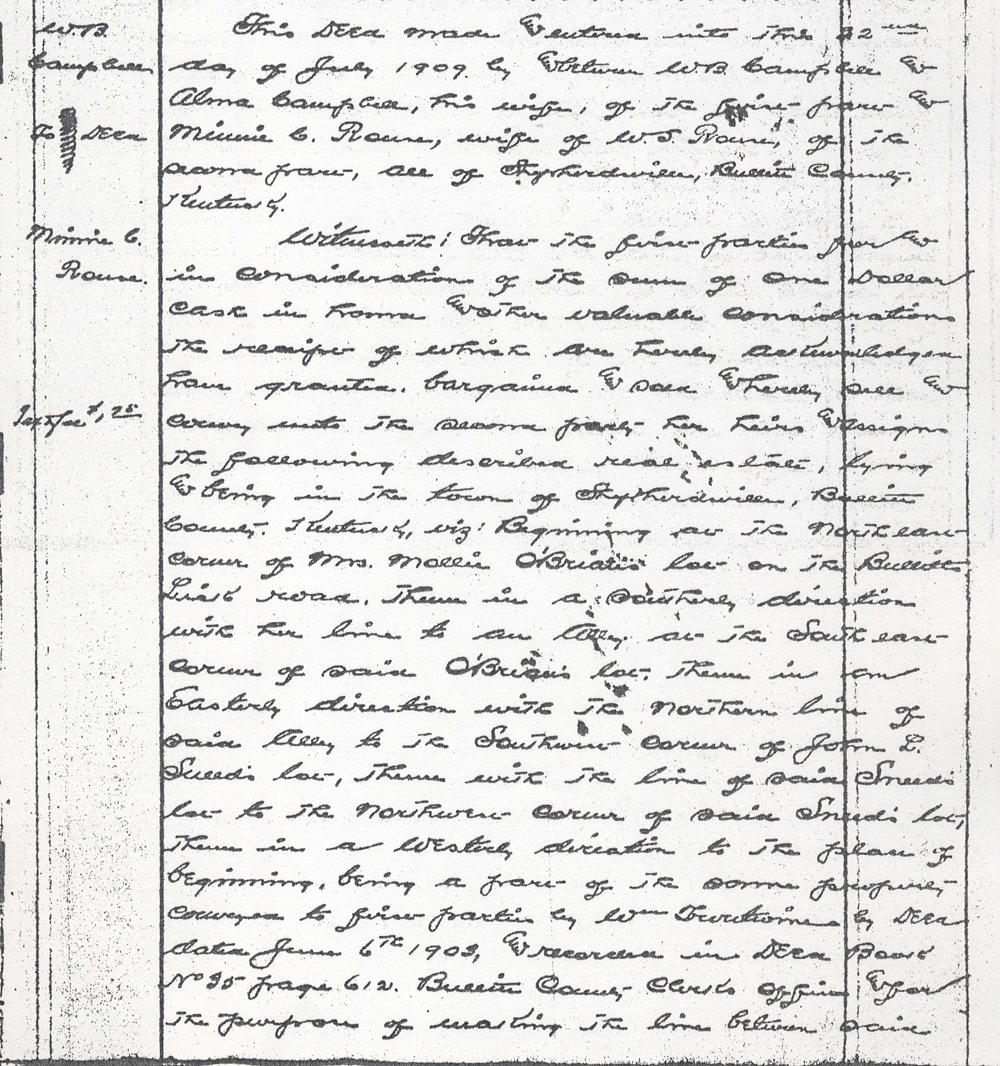 W.B.
Campbell
To Deed
Minnie C.
Rouse.
This Deed made & entered into this 22nd
day of July 1909 by & between W.B. Campbell &
Alma Campbell, his wife, of the first part &
Minnie C. Rouse, wife of W.S. Rouse, of the
second part, all of Shepherdsville, Bullitt County,
Kentucky.
Witnesseth: That the first parties for &
in consideration of the sum of One Dollar
cash in hand & other valuable considerations
the receipt of which are hereby acknowledged
have granted, bargained & sold & hereby sell &
convey unto the second party her heirs & assigns
the following described real estate, lying
& being in the town of Shepherdsville, Bullitt
County, Kentucky, viz: Beginning at the North east
corner of Mrs. Mollie O'Brian's lot on the Bullitts
Lick road, thence in a southerly direction
with her line to an Alley at the South east
corner of said O'Brian's lot, thence in an
Easterly direction with the Northern line of
said Alley to the Southwest corner of John L.
Sneed's lot, thence with the line of said Sneed's
lot to the Northwest corner of said Sneed's lot,
thence in a Westerly direction to the place of
beginning, being a part of the same property
conveyed to first parties by Wm by Deed
dated June 6th 1903, & recorded in Deed Book
No 35 page 612. Bullitt County Clerk's office & for
the purpose of making the line between said